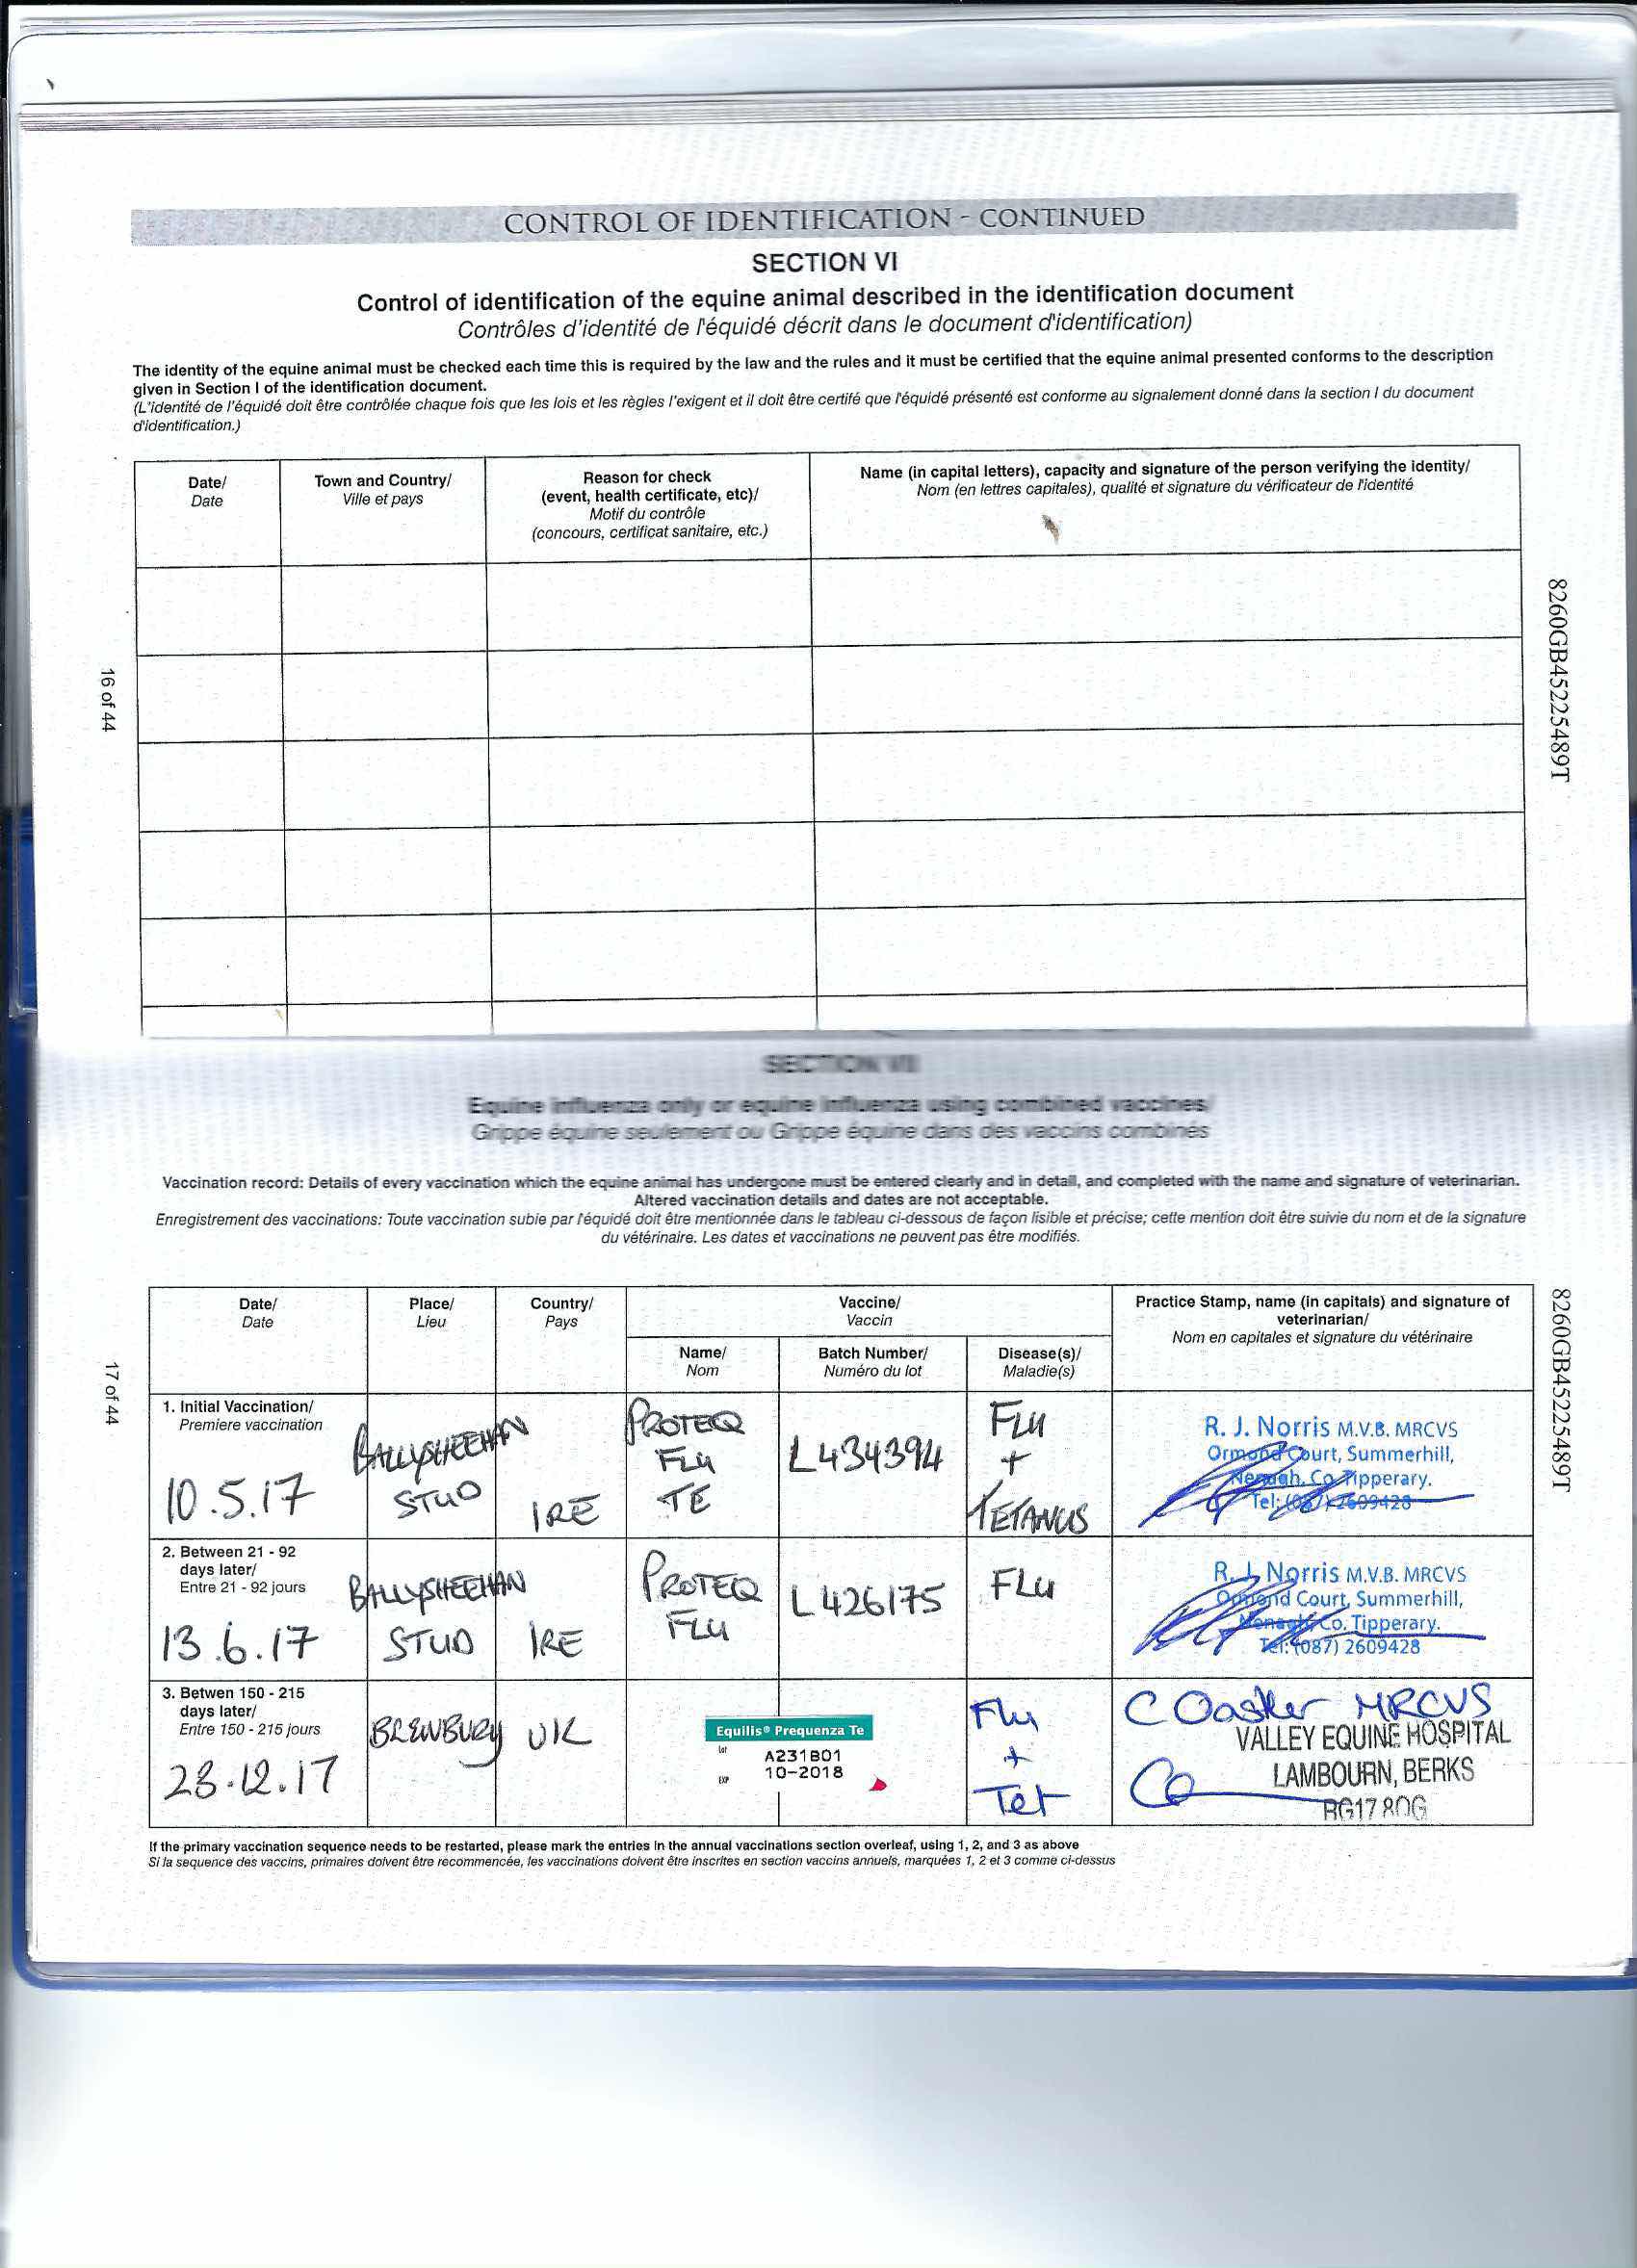 CONTROL OF IDENTIFICATION - CONTINUED
SECTION VI
Control of identification of the equine animal described in the identification document
Contrôles d'identité de l'équidé décrit dans le document d'identification)
The identity of the equine animal must be checked each time this is required by the law and the rules and it must be certified that the equine animal presented conforms to the description
given in Section I of the identification document.
(L'identité de l'équidé doit être contrôlée chaque fois que les lois et les règles l'exigent et il doit être certifé que l'équidé présenté est conforme au signalement donné dans la section I du document
d'identification.)
Date/
Date
Town and Country/
Ville et pays
Reason for check
(event, health certificate, etc)/
Motif du contrôle
(concours, certificat sanitaire, etc.)
Name (in capital letters), capacity and signature of the person verifying the identity/
Nom (en lettres capitales), qualité et signature du vérificateur de l'identité
16 of 44
8260GB45225489T
SECTION VII
Equine influenza only or equine influenza using combined vaccines/
Grippe équine seulement ou Grippe équine dans des vaccins combinés
Vaccination record: Details of every vaccination which the equine animal has undergone must be entered clearly and in detail, and completed with the name and signature of veterinarian.
Altered vaccination details and dates are not acceptable.
Enregistrement des vaccinations: Toute vaccination subie par l'équidé doit être mentionnée dans le tableau ci-dessous de façon lisible et précise; cette mention doit être suivie du nom et de la signature
du vétérinaire. Les dates et vaccinations ne peuvent pas être modifiés.
Date/
Date
Place/
Lieu
Country/
Pays
Vaccine/
Vaccin
Name/
Nom
Batch Number/
Numéro du lot
Disease(s)/
Maladie(s)
Practice Stamp, name (in capitals) and signature of
veterinarian/
Nom en capitales et signature du vétérinaire
17 of 44
8260GB45225489T
1. Initial Vaccination/
Premiere vaccination
10.5.17
BALLYSHEEHAN
STUD
IRE
PROTEQ
FLU
TE
L434394
FLU
+
TETANUS
R. J. Norris M.V.B. MRCVS
Ormond Court, Summerhill,
Nenagh, Co. Tipperary.
Tel: (087) 2609428
2. Between 21 - 92
days later/
Entre 21 - 92 jours
13.6.17
BALLYSHEEHAN
STUD
IRE
PROTEQ
FLU
L426175
FLU
R. J. Norris M.V.B. MRCVS
Ormond Court, Summerhill,
Nenagh, Co. Tipperary.
Tel: (087) 2609428
3. Betwen 150 - 215
days later/
Entre 150 - 215 jours
28.12.17
BLEWBURY
UK
Equilis® Prequenza Te
lot
A231B01
EXP
10-2018
Flu
+
Tet
C Oasker MRCVS
VALLEY EQUINE HOSPITAL
LAMBOURN, BERKS
RG17 8QG
If the primary vaccination sequence needs to be restarted, please mark the entries in the annual vaccinations section overleaf, using 1, 2, and 3 as above
Si la sequence des vaccins, primaires doivent être recommencée, les vaccinations doivent être inscrites en section vaccins annuels, marquées 1, 2 et 3 comme ci-dessus